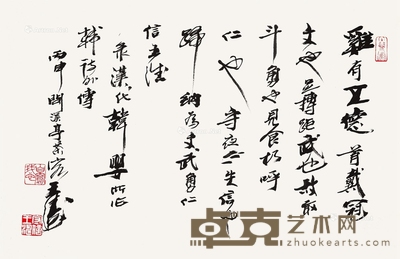 雞有五德首戴冠
文也足搏距武也敵敢
斗勇也見食相呼
仁也守夜不失信也
歸納為文武勇仁
信五德
录漢代韓嬰所作
韓詩外傳
丙申
卓克艺术网
www.zhuokearts.com